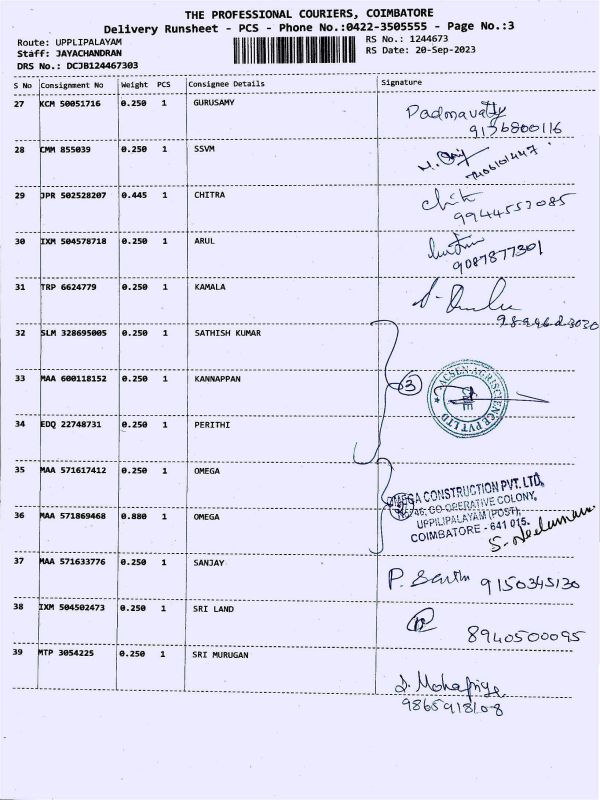 THE PROFESSIONAL COURIERS, COIMBATORE
Delivery Runsheet - PCS - Phone No.:0422-3505555 - Page No.:3
Route: UPPLIPALAYAM
RS No.: 1244673
Staff: JAYACHANDRAN
RS Date: 20-Sep-2023
DRS No.: DCJB124467303
S No Consignment No Weight PCS Consignee Details Signature
27 KCM 50051716 0.250 1 GURUSAMY
Padmavathy
9136800116
28 CMM 855039 0.250 1 SSVM
29 JPR 502528207 0.445 1 CHITRA
9944553085
30 IXM 504578718 0.250 1 ARUL
9087877301
31 TRP 6624779 0.250 1 KAMALA
32 SLM 328695005 0.250 1 SATHISH KUMAR
33 MAA 600118152 0.250 1 KANNAPPAN
3
ACSEN AGRISCIENCE PVT LTD
34 EDQ 22748731 0.250 1 PERITHI
35 MAA 571617412 0.250 1 OMEGA
OMEGA CONSTRUCTION PVT. LTD,
CO-OPERATIVE COLONY,
36 MAA 571869468 0.880 1 OMEGA
UPPILIPALAYAM (POST),
COIMBATORE - 641 015.
37 MAA 571633776 0.250 1 SANJAY
P. 9150345130
38 IXM 504502473 0.250 1 SRI LAND
8940500095
39 MTP 3054225 0.250 1 SRI MURUGAN
9865918108